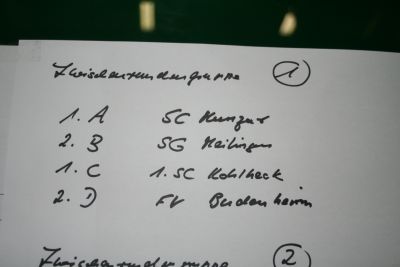 Zwischenrundengruppe 1
1. A SC Kunzus
2. B SG Heilingen
1. C 1. SC Kohlheck
2. D FV Budenheim
Zwischenrundengruppe 2